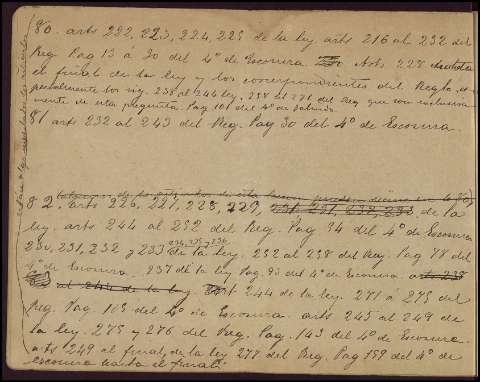 80. arts 222, 223, 224, 225 de la ley. arts 216 al 232 del
Reg. Pag 13 á 30 del 4º de Escosura. Arts. 228
el final de la ley y los correspondientes del Regla.
pecialmente los sig. 238 al 244 ley, 258 al 278 del Reg que son exclusiva
mente de esta pregunta. Pag 101 del 4º de
81 arts 232 al 243 del Reg. Pag 30 del 4º de Escosura.
82. arts 226, 227, 228, 229, 230, 231, 232, 233 de la
ley. arts 244 al 252 del Reg. Pag 34 del 4º de Escosura
230, 231, 232 y 233 234, 235 y 236 de la ley. 252 al 258 del Reg. Pag 78 del
4º de Escosura. 237 de la ley Pag. 93 del 4º de Escosura art 238
al 244 de la ley Art 244 de la ley. 271 á 273 del
Reg. Pag. 103 del 4º de Escosura. arts 245 al 249 de
la ley. 275 y 276 del Reg. Pag. 143 del 4º de Escosura.
arts 249 al final, de la ley 277 del Reg. Pag 159 del 4º de
Escosura hasta el final.